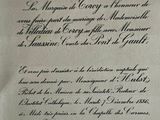 Le Marquis de Torcy a l'honneur de
vous faire part du mariage de Mademoiselle
de Villedieu de Torcy sa fille avec Monsieur
de Saussine Comte du Pont de Gault.
Et vous prie d'assister à la bénédiction nuptiale qui
leur sera donnée par Monseigneur d'Hulst,
Prélat de la Maison de Sa Sainteté, Recteur de
l'Institut Catholique, le Mardi 7 Décembre 1886,
à Midi très précis en la Chapelle des Carmes